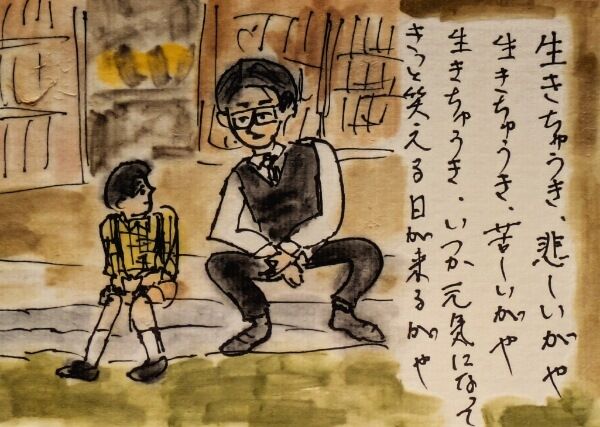 生きちゅうき、悲しいがや
生きちゅうき、苦しいがや
生きちゅうき、いつか元気になって
きっと笑える日が来るがや